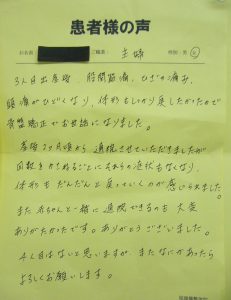 患者様の声
お名前 ご職業: 主婦 性別: 男 女
3人目出産後、股関節痛、ひざの痛み、
頭痛がひどくなり、体形もしっかり戻したかったので
骨盤矯正でお世話になりました。
産後2ヶ月頃から通院させていただきましたが
回数をかさねるごとにそれらの症状もなくなり、
体形もだんだんと戻っていくのが感じられました。
また赤ちゃんと一緒に通院できるのも大変
ありがたかったです。ありがとうございました。
4人目はないと思いますが、またなにかあったら
よろしくお願いします。